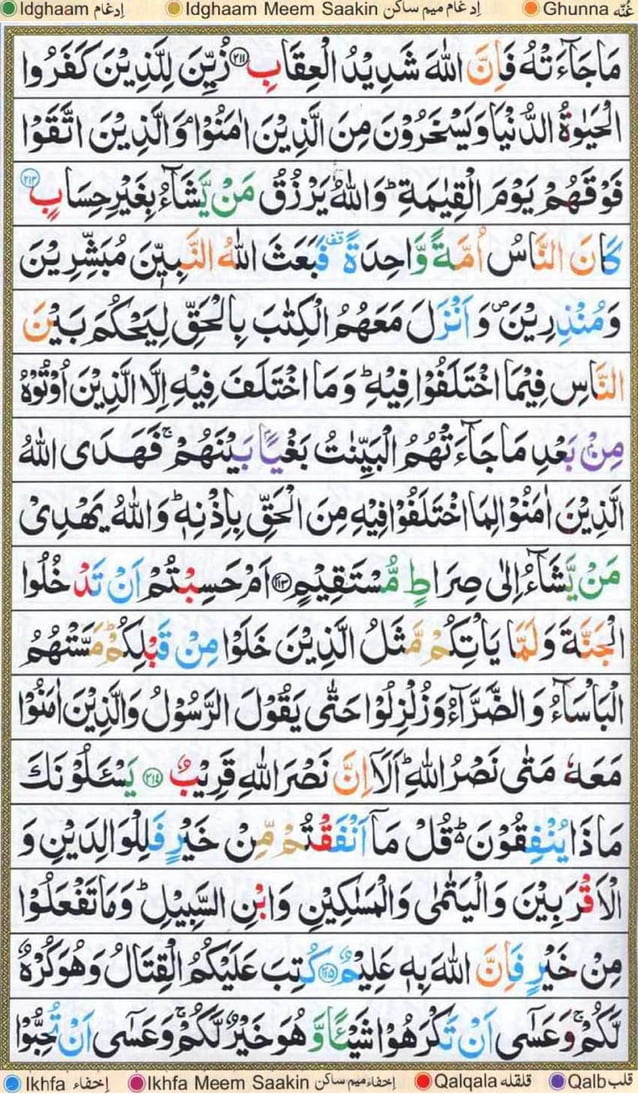 Idghaam ادغام Idghaam Meem Saakin ادغام میم ساکن Ghunna غُنَّه
مَا جَآءَتْهُ فَاِنَّ اللّٰهَ شَدِيْدُ الْعِقَابِ ﴿۲۱۱﴾ زُيِّنَ لِلَّذِيْنَ كَفَرُوا
الْحَيٰوةُ الدُّنْيَا وَيَسْخَرُوْنَ مِنَ الَّذِيْنَ اٰمَنُوْا ۘ وَالَّذِيْنَ اتَّقَوْا
فَوْقَهُمْ يَوْمَ الْقِيٰمَةِ ؕ وَاللّٰهُ يَرْزُقُ مَنْ يَّشَآءُ بِغَيْرِ حِسَابٍ ﴿۲۱۲﴾
كَانَ النَّاسُ اُمَّةً وَّاحِدَةً ۫ فَبَعَثَ اللّٰهُ النَّبِيّٖنَ مُبَشِّرِيْنَ
وَمُنْذِرِيْنَ ۪ وَاَنْزَلَ مَعَهُمُ الْكِتٰبَ بِالْحَقِّ لِيَحْكُمَ بَيْنَ
النَّاسِ فِيْمَا اخْتَلَفُوْا فِيْهِ ؕ وَمَا اخْتَلَفَ فِيْهِ اِلَّا الَّذِيْنَ اُوْتُوْهُ
مِنْۢ بَعْدِ مَا جَآءَتْهُمُ الْبَيِّنٰتُ بَغْيًۢا بَيْنَهُمْ ۚ فَهَدَى اللّٰهُ
الَّذِيْنَ اٰمَنُوْا لِمَا اخْتَلَفُوْا فِيْهِ مِنَ الْحَقِّ بِاِذْنِهٖ ؕ وَاللّٰهُ يَهْدِيْ
مَنْ يَّشَآءُ اِلٰى صِرَاطٍ مُّسْتَقِيْمٍ ﴿۲۱۳﴾ اَمْ حَسِبْتُمْ اَنْ تَدْخُلُوا
الْجَنَّةَ وَلَمَّا يَاْتِكُمْ مَّثَلُ الَّذِيْنَ خَلَوْا مِنْ قَبْلِكُمْ ؕ مَسَّتْهُمُ
الْبَاْسَآءُ وَالضَّرَّآءُ وَزُلْزِلُوْا حَتّٰى يَقُوْلَ الرَّسُوْلُ وَالَّذِيْنَ اٰمَنُوْا
مَعَهٗ مَتٰى نَصْرُ اللّٰهِ ؕ اَلَاۤ اِنَّ نَصْرَ اللّٰهِ قَرِيْبٌ ﴿۲۱۴﴾ يَسْـَٔلُوْنَكَ
مَاذَا يُنْفِقُوْنَ ؕ قُلْ مَاۤ اَنْفَقْتُمْ مِّنْ خَيْرٍ فَلِلْوَالِدَيْنِ وَ
الْاَقْرَبِيْنَ وَالْيَتٰمٰى وَالْمَسٰكِيْنِ وَابْنِ السَّبِيْلِ ؕ وَمَا تَفْعَلُوْا
مِنْ خَيْرٍ فَاِنَّ اللّٰهَ بِهٖ عَلِيْمٌ ﴿۲۱۵﴾ كُتِبَ عَلَيْكُمُ الْقِتَالُ وَهُوَ كُرْهٌ
لَّكُمْ ۚ وَعَسٰۤى اَنْ تَكْرَهُوْا شَيْـًٔا وَّهُوَ خَيْرٌ لَّكُمْ ۚ وَعَسٰۤى اَنْ تُحِبُّوْا
Ikhfa اخفاء Ikhfa Meem Saakin اخفاء میم ساکن Qalqala قلقله Qalb قلب